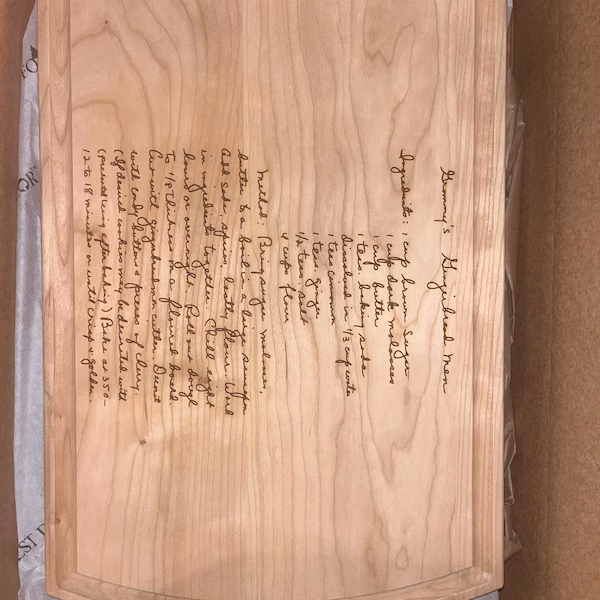 Grammy's Gingerbread Men
Ingredients: 1 cup brown sugar
1 cup dark molasses
1 cup butter
1 teas. baking soda
Dissolved in 1/3 cup water
1 teas cinnamon
1 teas. ginger
1/2 teas. salt
4 cups flour
Method: Bring sugar, molasses,
butter to a boil in a large saucepan
Add soda, spices, lastly flour. Work
in ingredients together. Chill eight
hours or overnight. Roll out dough
to 1/8 thickness on a floured board.
Cut with gingerbread man cutter. Decorate
with candy buttons & pieces of cherry.
(If desired cookies may be decorated with
icing after baking) Bake at 350-
12 to 18 minutes or until crisp & golden.